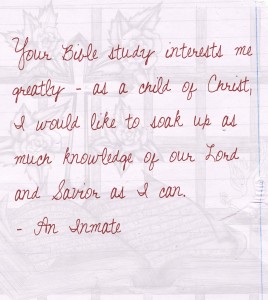 Your Bible study interests me
greatly - as a child of Christ,
I would like to soak up as
much knowledge of our Lord
and Savior as I can.
- An Inmate